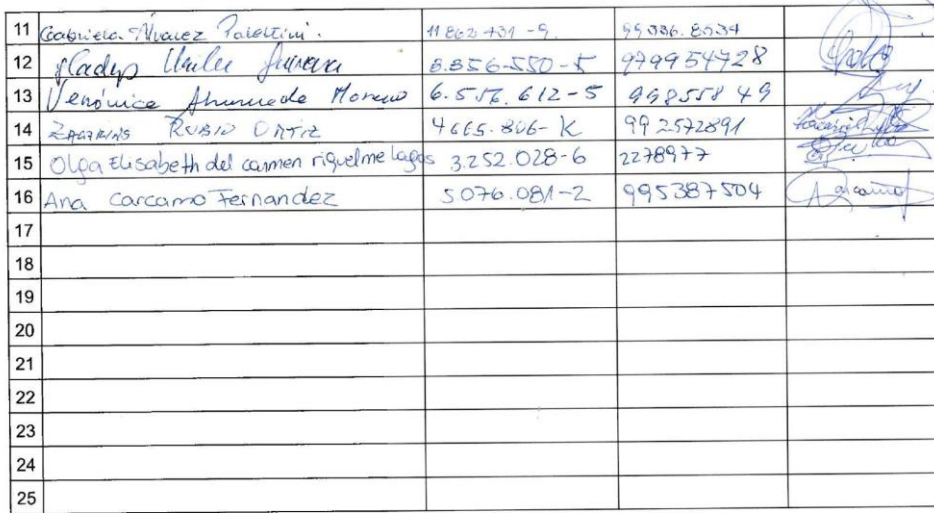 11 Gabriela Álvarez 11.862.431-9.
12 Gladys 8.856-550-5 979954728
13 Verónica Ahumada Moreno 6.556.612-5 99855849
14 RUBIO ORTIZ 4665.806-K 992572891
15 Olga Elisabeth del carmen riquelme lagos 3.252.028-6 2278977
16 Ana Carcamo Fernandez 5076.081-2 995387504
17
18
19
20
21
22
23
24
25